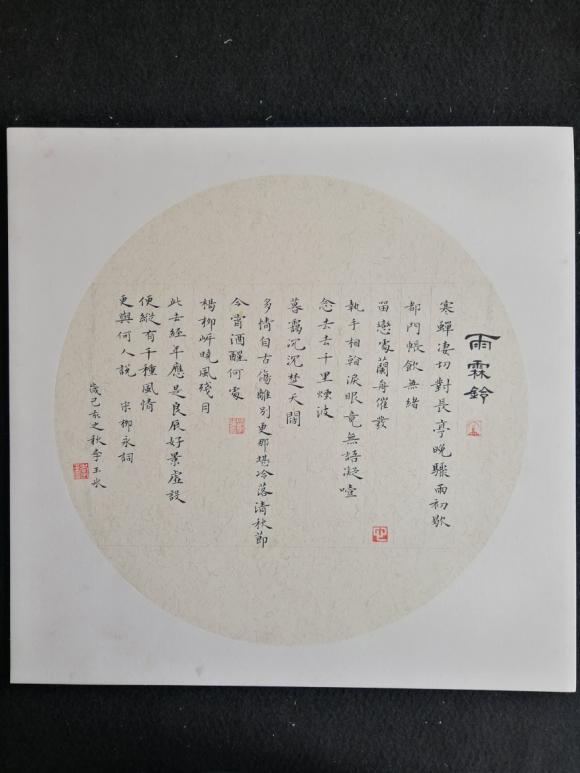 雨霖鈴
寒蟬凄切對長亭晚驟雨初歇
都門帳飲無緒
留戀處蘭舟催發
執手相看淚眼竟無語凝噎
念去去千里煙波
暮靄沉沉楚天闊
多情自古傷離別更那堪冷落清秋節
今宵酒醒何處
楊柳岸曉風殘月
此去經年應是良辰好景虛設
便縱有千種風情
更與何人說 宋柳永詞
歲己亥之秋李玉